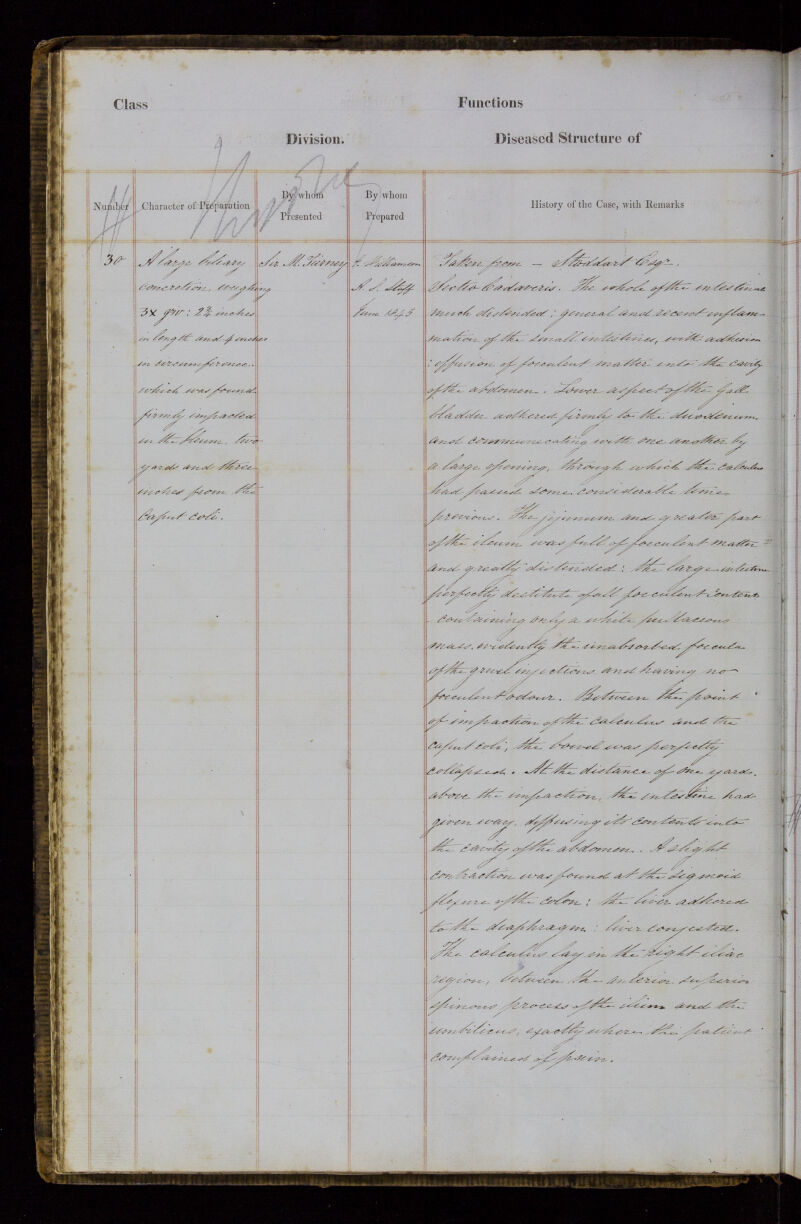 Class
Functions
Division.
Diseased Structure of
Number
Character of Preparation
By whom
Presented
By whom
Prepared
History of the Case, with Remarks
30
A large biliary
concretion weighing
in length and 4 inches
in circumference.
which was found
firmly impacted
in the Ileum two
yards and three
inches from the
Caput coli.
Sir M. Tierney
Williamson
A. S. Stuff
June 1843
Taken from – Stoddart Esqr.
Sectio Cadaveris. The whole of the intestines
much distended: general and recent inflam-
mation of the small intestines, with adhesion
: effusion of foeculent matter into the cavity
of the abdomen. Lower aspect of the Gall
bladder adhered firmly to the duodenum
and communicating with one another by
a large opening, through which the calculus
had passed some considerable time
previous. The jejunum and greater part
of the ileum was full of foeculent matter
and greatly distended: the large intestine
perfectly destitute of all foeculent contents
containing only a white pultaceous
mass, evidently the unabsorbed foecula
of the gruel injections and having no
foeculent odour. Between the point
of impaction of the calculus and the
caput coli, the bowel was perfectly
collapsed. At the distance of one yard
above the impaction, the intestine had
given way, diffusing its contents into
the cavity of the abdomen. A slight
contraction was found at the sigmoid
flexure of the colon: the liver adhered
to the diaphragm: liver conjested.
The calculus lay in the right iliac
region, between the anterior superior
spinous process of the ilium and the
umbilicus, exactly where the patient
complained of pain.